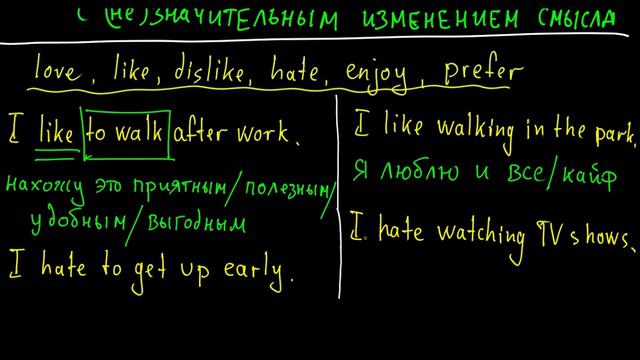 с (не)значительным изменением смысла
love, like, dislike, hate, enjoy, prefer
I like to walk after work.
нахожу это приятным/полезным/
удобным/выгодным
I hate to get up early.
I like walking in the park.
Я люблю и все/кайф
I hate watching TV shows.